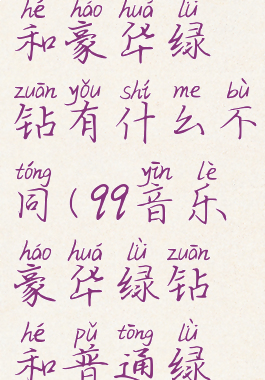 hé háo huá lǜ
和豪华绿
zuān yǒu shí me bù
钻有什么不
tóng yīn lè
同(99音乐
háo huá lǜ zuān
豪华绿钻
hé pǔ tōng lǜ
和普通绿